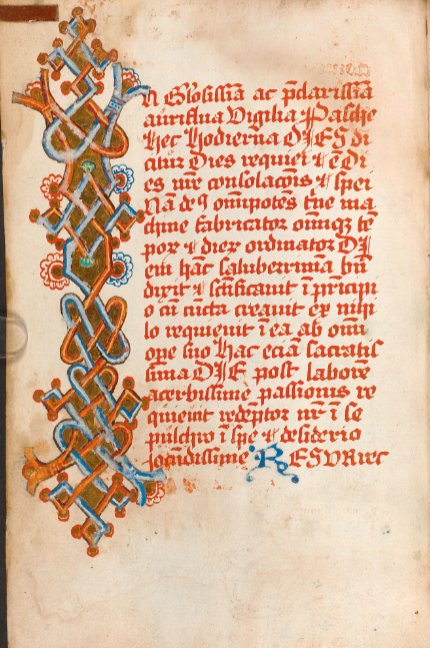 N Glorissīa ac p̄clarissīa
auriflua Vigilia Pasche
hec hodierna DIES di
citur Dies requiei ⁊ ē Di
es nr̄e consolacōis ⁊ spei
Nā deꝯ om̄ipotēs t̄ne ma
chine fabricator om̄iuꝫ tē
poꝝ ⁊ dieꝝ ordinator DI
em hāc saluberrimā bn̄
dixit ⁊ scīficauit ī pricipi
o cū cūcta creauit ex nihi
lo requieuit ī ea ab omī
ope suo hac eciā sacratis
sima DIE post laborē
acerbissime passionis re
quieuit redēptor nr̄ ī se
pulchro ī spe ⁊ desiderio
jocūdissime RESVRrec